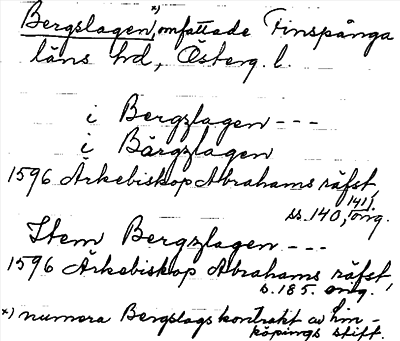 Bergslagen,*) omfattade Finspånga
läns hd, Österg. l.
i Bergzlagen ---
i Bärgzlagen
1596 Ärkebiskop Abrahams räfst,
ss. 140, 141, orig.
Item Bergzlagen ---
1596 Ärkebiskop Abrahams räfst,
s. 185. orig.
*) numera Bergslags kontrakt av Lin-
köpings stift.